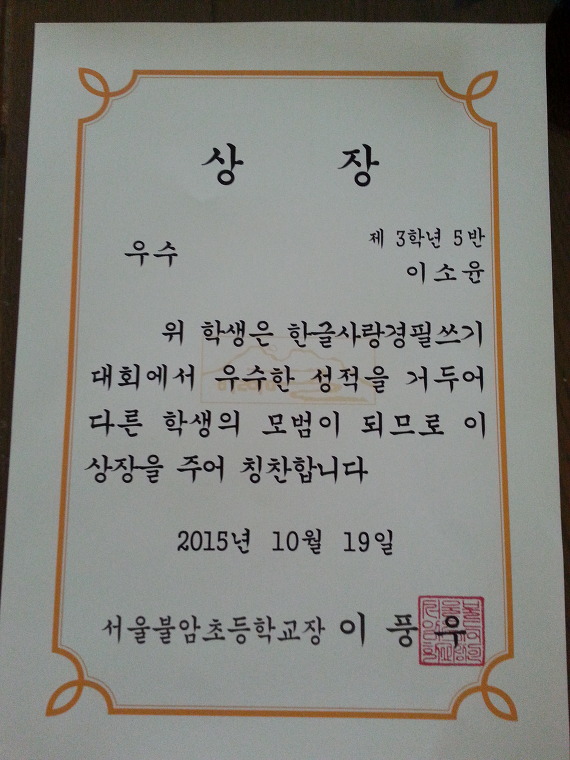 상 장
제 3학년 5반
우수
이소윤
위 학생은 한글사랑경필쓰기
대회에서 우수한 성적을 거두어
다른 학생의 모범이 되므로 이
상장을 주어 칭찬합니다
2015년 10월 19일
서울불암초등학교장 이 풍 우